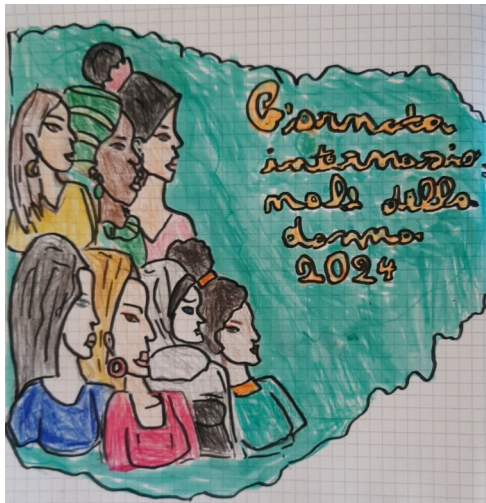 Giornata
internazio-
nale della
donna
2024